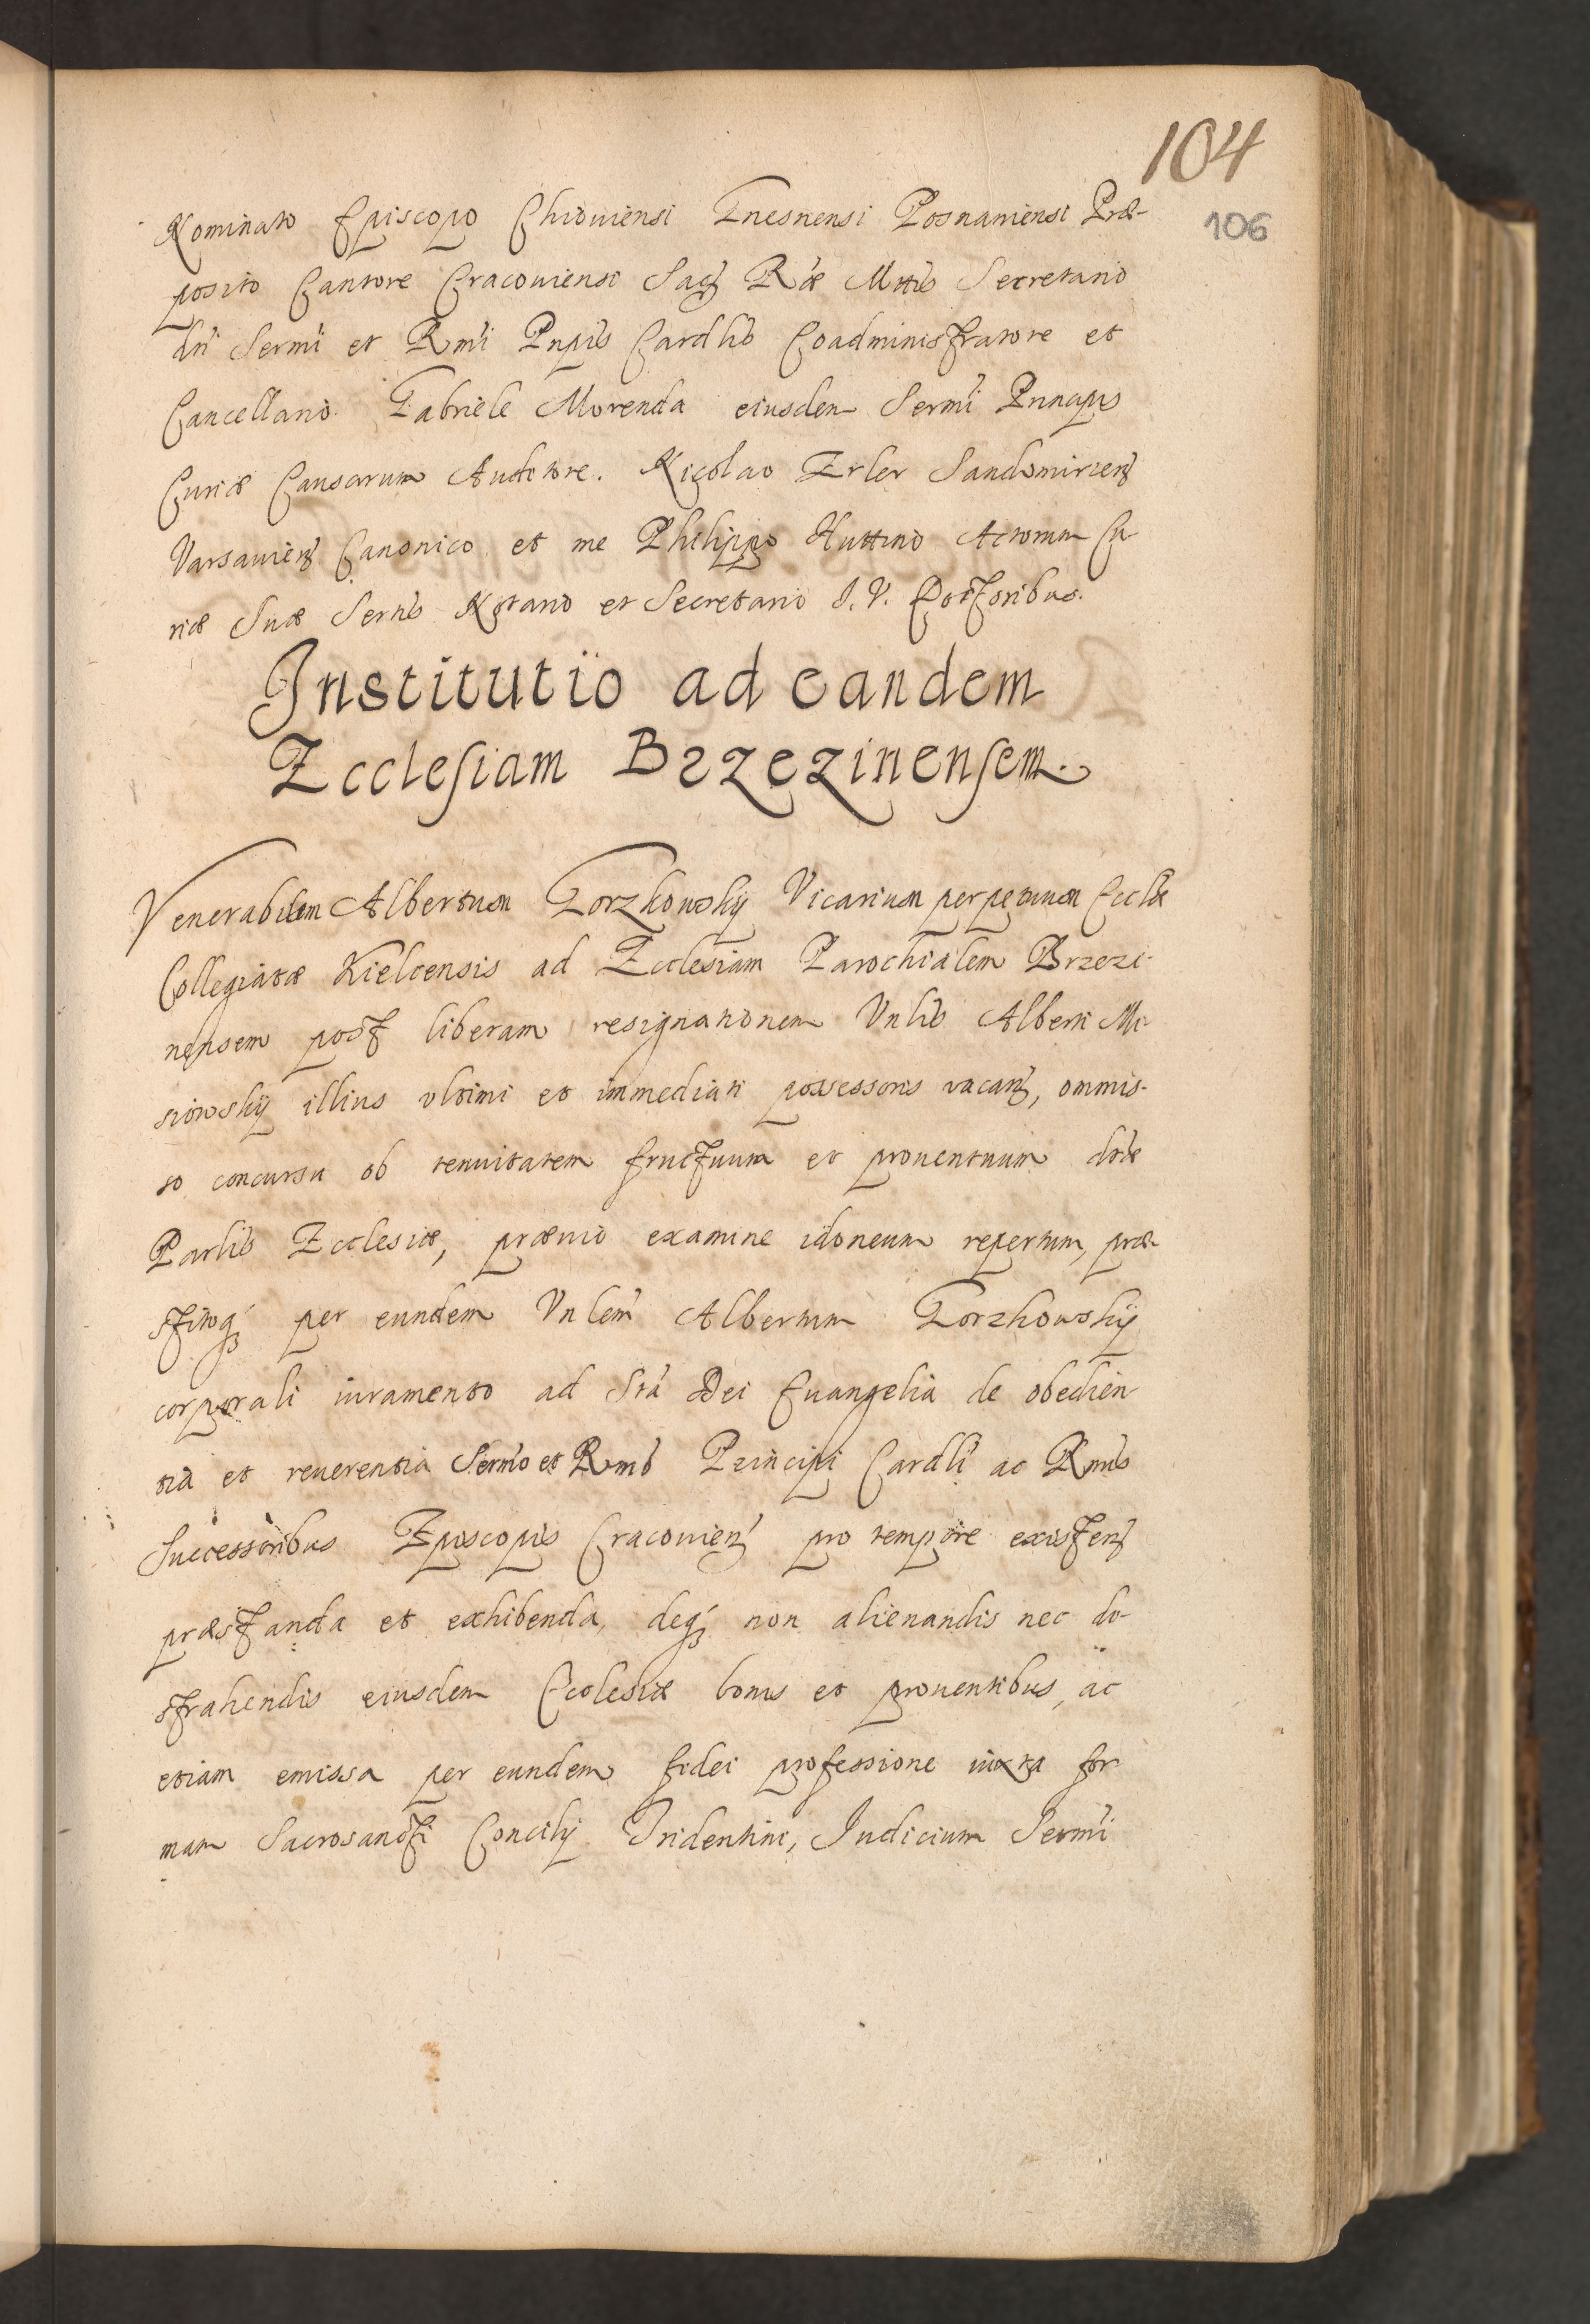 104
106
Nominato Episcopo Chiouiensi Gnesnensi Posnaniensi Præ-
posito Cantore Cracouiensi Sacꝫ Ræ Mttis Secretario
dni Sermi et Rmi Pnpis Cardlis Coadministratore et
Cancellario. Gabriele Morenda eiusdem Sermi Principis
Curiæ Causarum Auditore. Nicolao Erler Sandomirienꝫ
Varsauienꝫ Canonico et me Philippo Huttino Actorum Cu-
riæ Suæ Sertis Notario et Secretario I. V. Doctoribus.
Institutio ad eandem
Ecclesiam Brzezinensem.
Venerabilem Albertum Gorzkowskij Vicarium perpetuum Ecclæ
Collegiatæ Kielcensis ad Ecclesiam Parochialem Brzezi-
nensem post liberam resignationem Vnlis Alberti Mi-
siowskij illius vltimi et immediati possessoris vacanꝫ, ommis-
so concursu ob tenuitatem fructuum et prouentuum dictæ
Parlis Ecclesiæ, præuio examine idoneum repertum, præ-
stitoqꝫ per eundem Vnlem Albertum Gorzkowskij
corporali iuramento ad Sta Dei Euangelia de obedien
tia et reuerentia Sermo et Rmo Principi Cardli ac Rmis
Successoribus Episcopis Cracouienꝫ pro tempore existenꝫ
præstanda et exhibenda, deqꝫ non alienandis nec di-
strahendis eiusdem Ecclesiæ bonis et prouentibus, ac
etiam emissa per eundem fidei professione iuxta for
mam Sacrosancti Concilij Tridentini, Iudicium Sermi